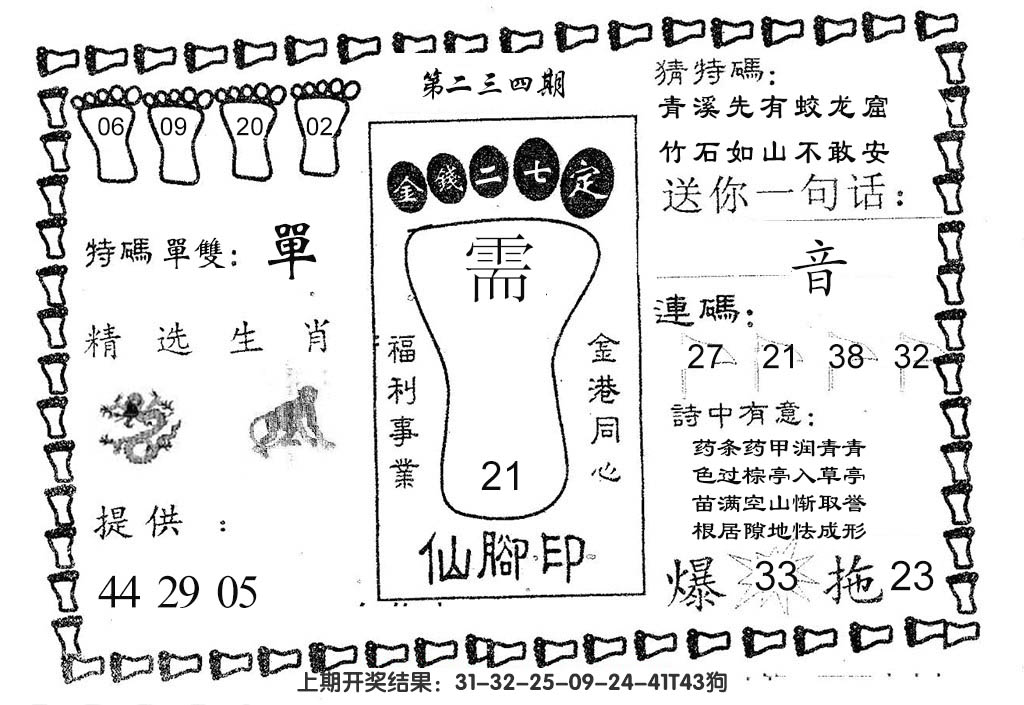 第二三四期
06 09 20 02
特碼單雙：單
精选生肖
提供：
44 29 05
金錢二七定
需
福利事業
金港同心
21
仙腳印
猜特碼：
青溪先有蛟龙窟
竹石如山不敢安
送你一句话：
音
連碼：
27 21 38 32
詩中有意：
药条药甲润青青
色过棕亭入草亭
苗满空山惭取誉
根居隙地怯成形
爆 33 拖 23
上期开奖结果：31-32-25-09-24-41T43狗